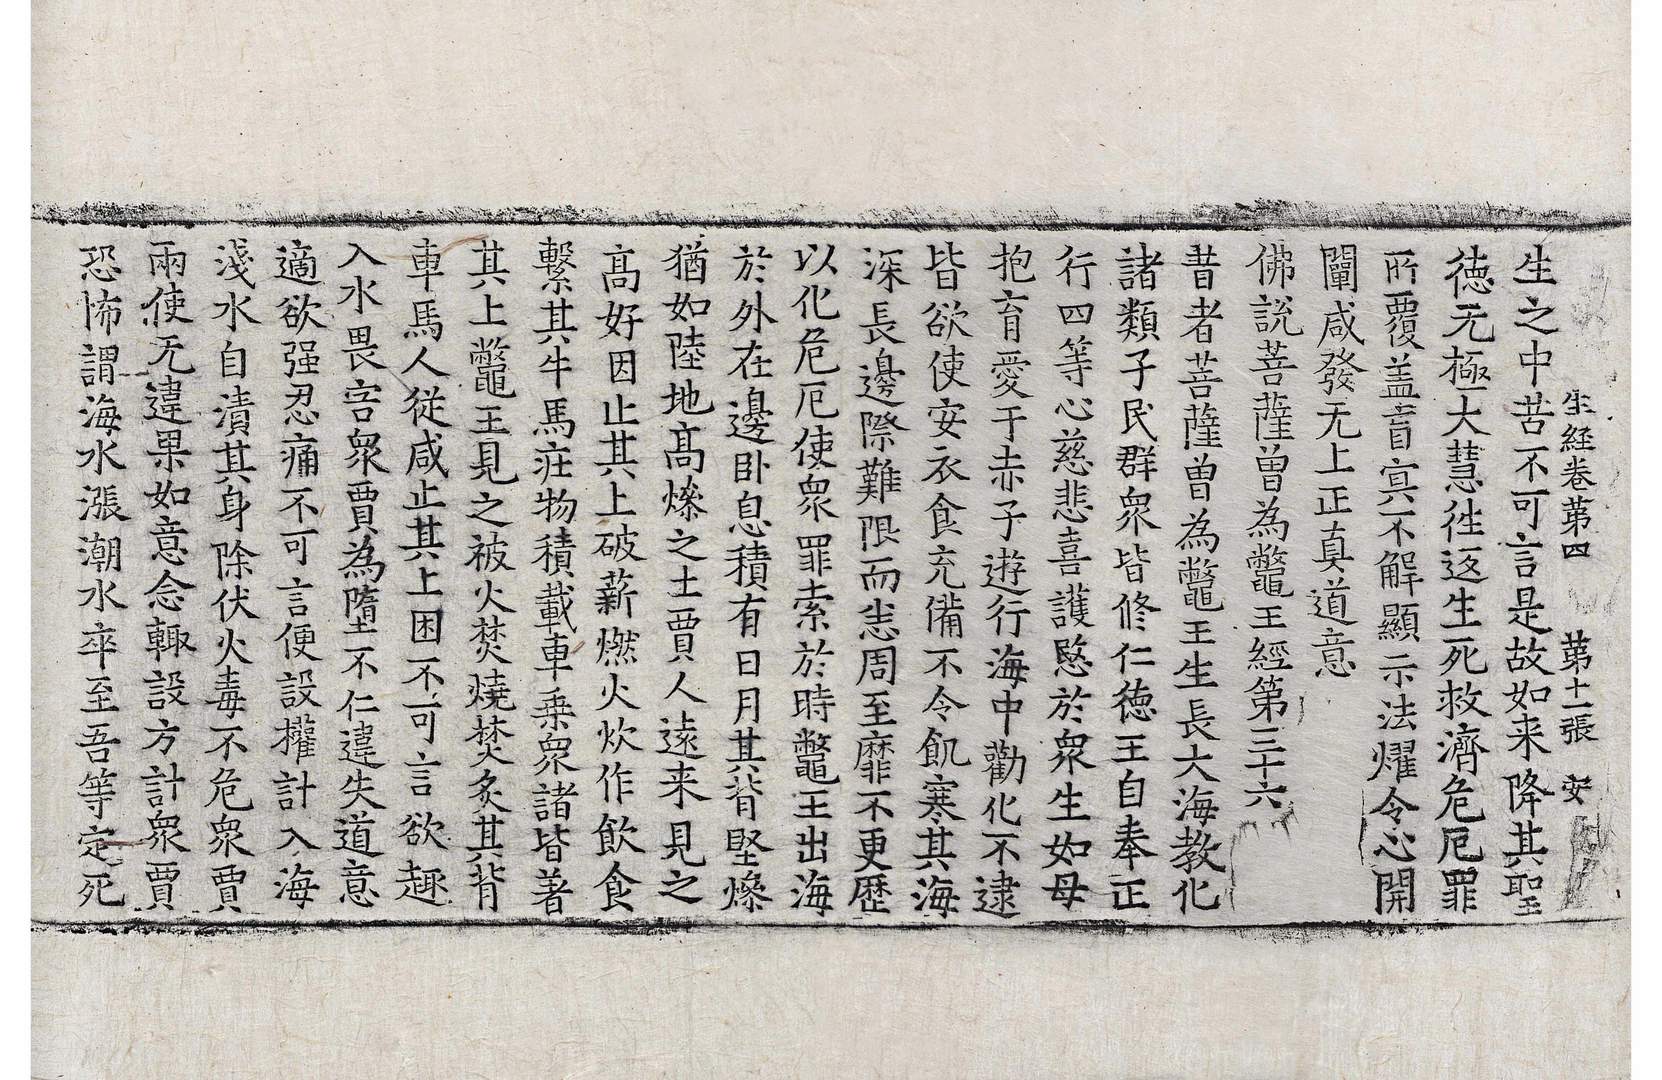 生経卷第四　第十一張　安
生之中苦不可言是故如来降其聖
德无極大慧往返生死救濟危厄罪
所覆盖盲㝠不解顯示法耀令心開
闡咸發无上正真道意
佛說菩薩曽為鼈王經第三十六
昔者菩薩曽為鼈王生長大海教化
諸類子民群衆皆修仁德王自奉正
行四等心慈悲喜護愍於衆生如母
抱育愛于赤子遊行海中勸化不逮
皆欲使安衣食充備不令飢寒其海
深長邊際難限而悉周至靡不更歷
以化危厄使衆罪索於時鼈王出海
於外在邊卧息積有日月其背堅燥
猶如陸地髙燥之土賈人遠来見之
髙好因止其上破薪燃火炊作飲食
繫其牛馬莊物積載車乗衆諸皆著
其上鼈王見之被火焚燒焚炙其背
車馬人從咸止其上困不可言欲趣
入水畏害衆賈為墮不仁違失道意
適欲强忍痛不可言便設權計入海
淺水自漬其身除伏火毒不危衆賈
兩使无違果如意念輙設方計衆賈
恐怖謂海水漲潮水卒至吾等定死